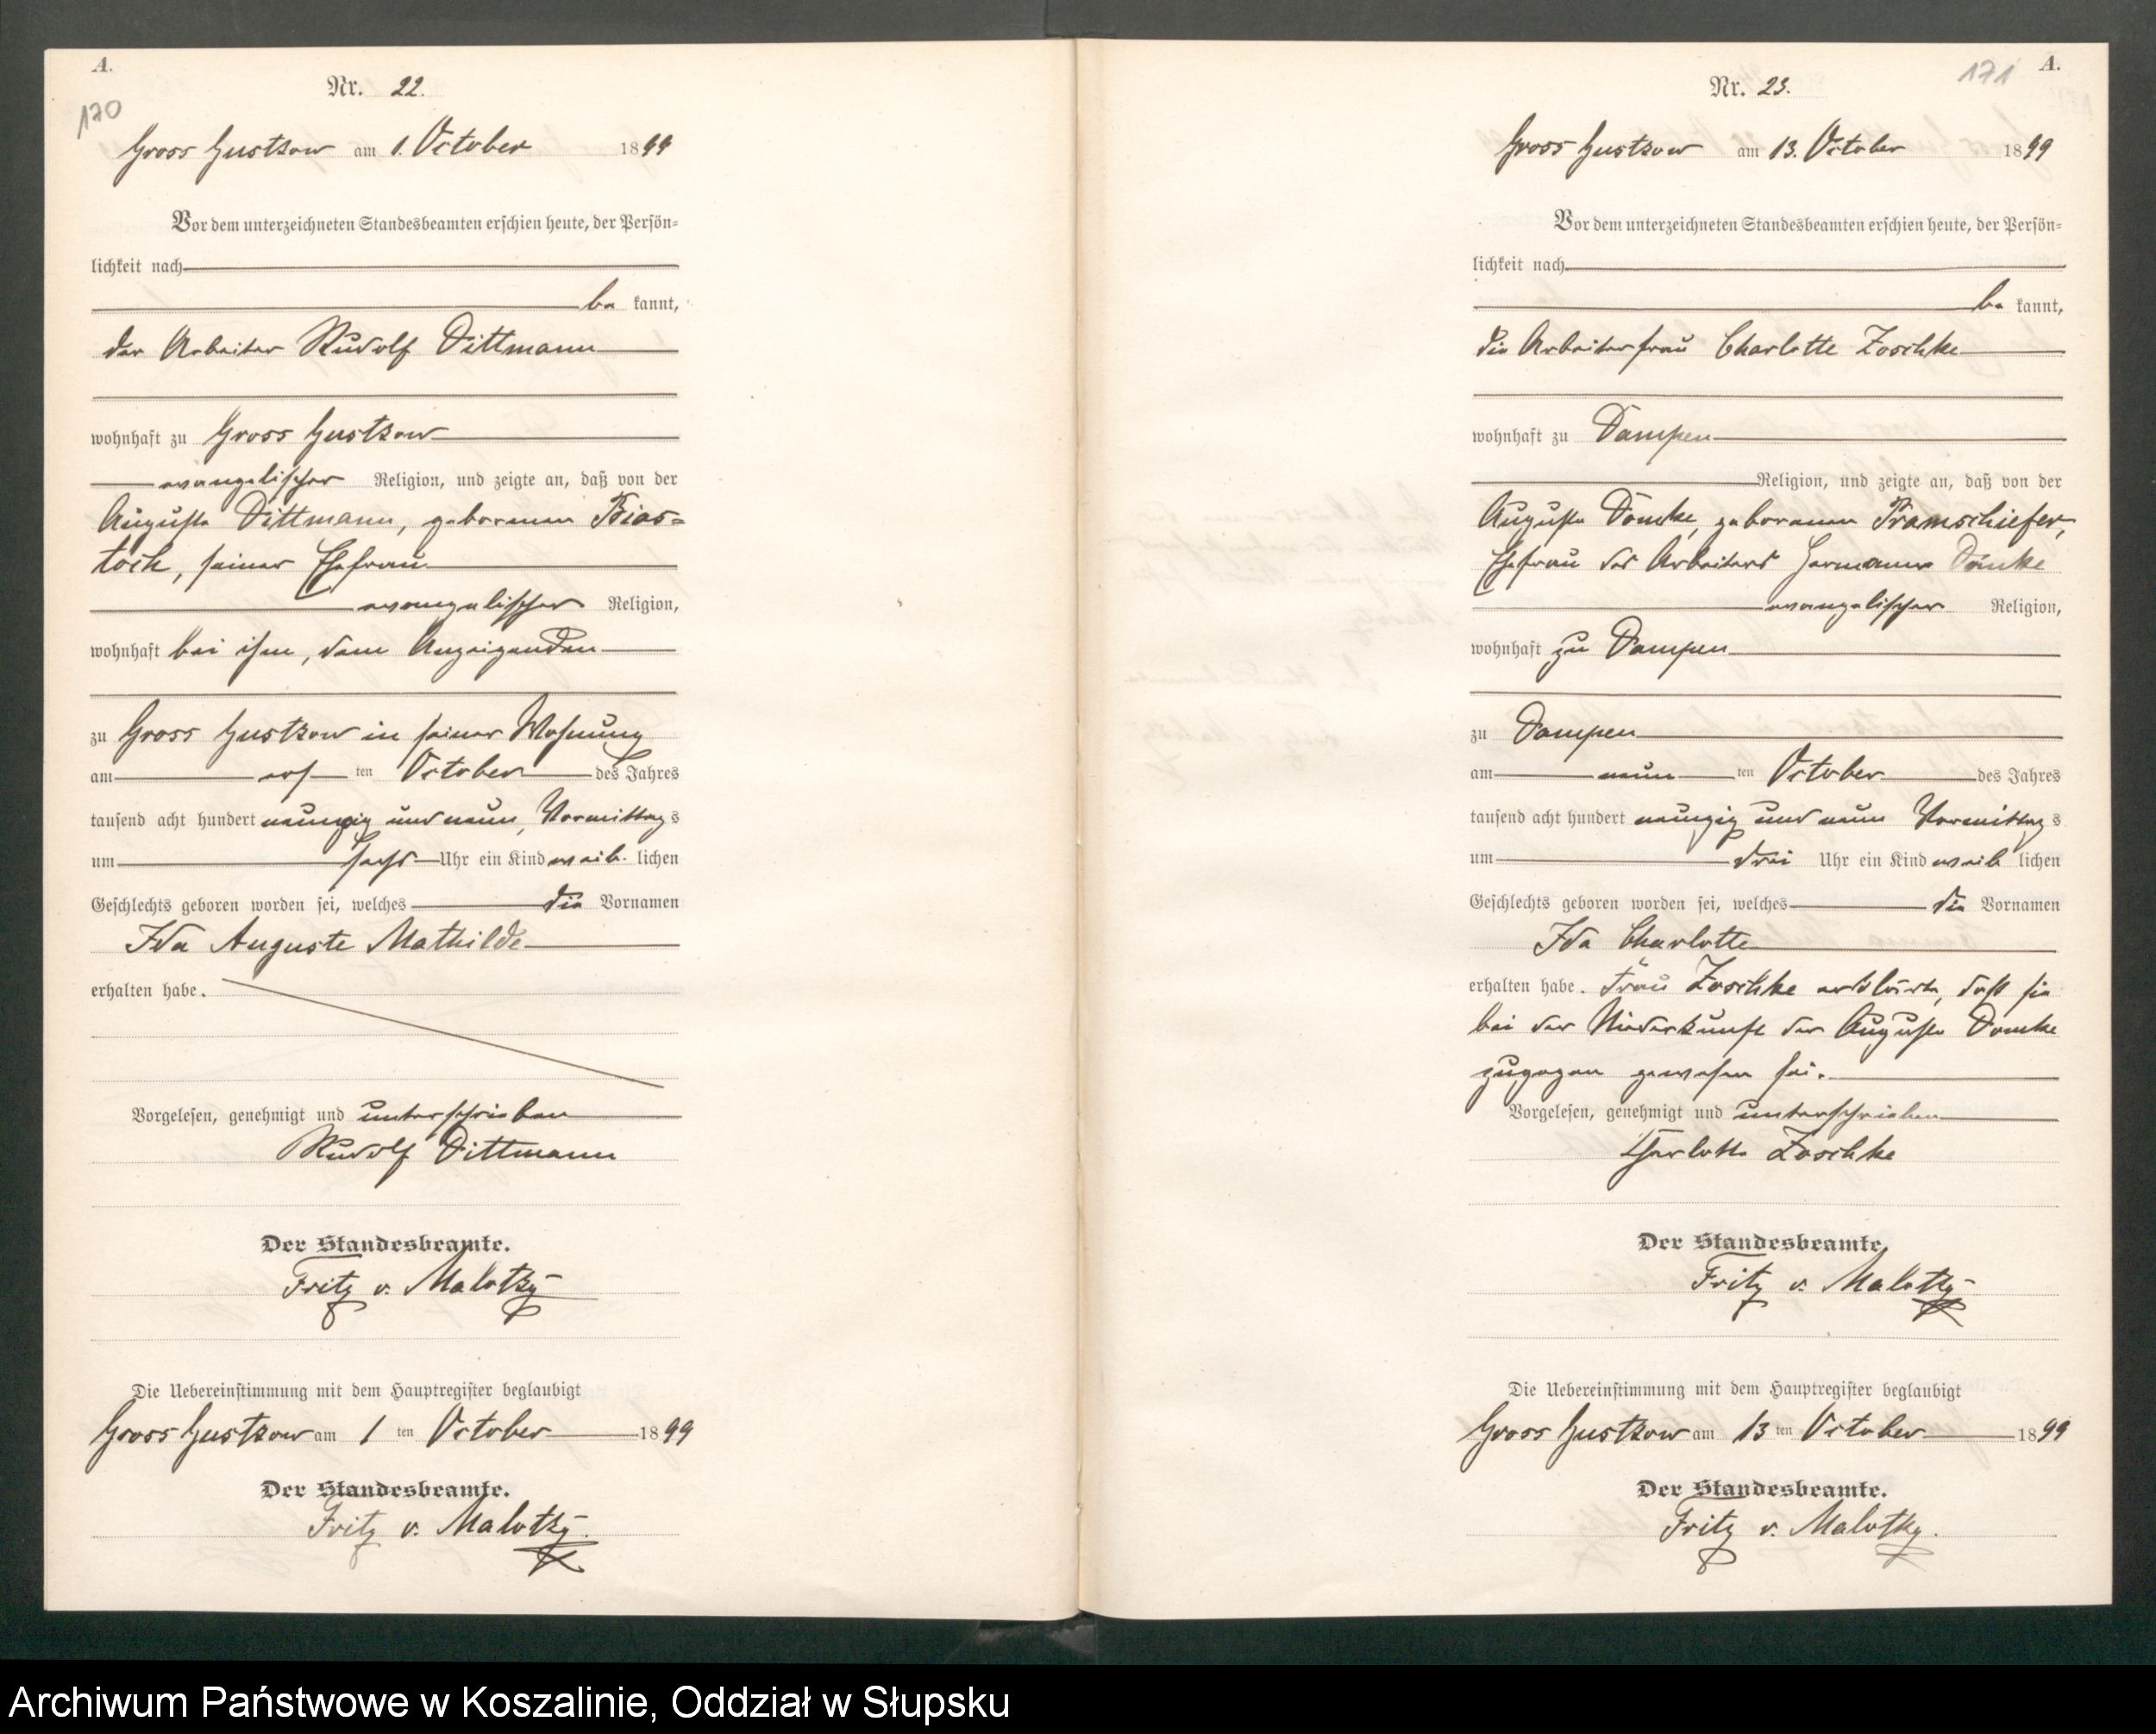 A.
170
Nr. 22.
Gross Gustkow am 1. October 1899
Vor dem unterzeichneten Standesbeamten erschien heute, der Persön-
lichkeit nach
be kannt,
der Arbeiter Rudolf Dittmann
wohnhaft zu Gross Gustkow
evangelischer Religion, und zeigte an, daß von der
Auguste Dittmann, geborenen Bias-
toch, seiner Ehefrau
evangelischer Religion,
wohnhaft bei ihm, dem Anzeigenden
zu Gross Gustkow in seiner Wohnung
am ersten October des Jahres
tausend acht hundert neunzig und neun, Vormittags
um sechs Uhr ein Kind weib. lichen
Geschlechts geboren worden sei, welches die Vornamen
Ida Auguste Mathilde
erhalten habe.
Vorgelesen, genehmigt und unterschrieben
Rudolf Dittmann
Der Standesbeamte.
Fritz v. Malotky
Die Uebereinstimmung mit dem Hauptregister beglaubigt
Gross Gustkow am 1 ten October 1899
Der Standesbeamte.
Fritz v. Malotky.
171 A.
Nr. 23.
Gross Gustkow am 13. October 1899
Vor dem unterzeichneten Standesbeamten erschien heute, der Persön-
lichkeit nach
be kannt,
die Arbeiterfrau Charlotte Zoschke
wohnhaft zu Dampen
Religion, und zeigte an, daß von der
Auguste Domke, geborenen Pramschiefer,
Ehefrau des Arbeiters Hermann Domke
evangelischer Religion,
wohnhaft zu Dampen
zu Dampen
am neun ten October des Jahres
tausend acht hundert neunzig und neun Vormittags
um drei Uhr ein Kind weib lichen
Geschlechts geboren worden sei, welches die Vornamen
Ida Charlotte
erhalten habe. Frau Zoschke erklärte, daß sie
bei der Niederkunft der Auguste Domke
zugegen gewesen sei.
Vorgelesen, genehmigt und unterschrieben
Charlotte Zoschke
Der Standesbeamte.
Fritz v. Malotky
Die Uebereinstimmung mit dem Hauptregister beglaubigt
Gross Gustkow am 13 ten October 1899
Der Standesbeamte.
Fritz v. Malotky.
Archiwum Państwowe w Koszalinie, Oddział w Słupsku